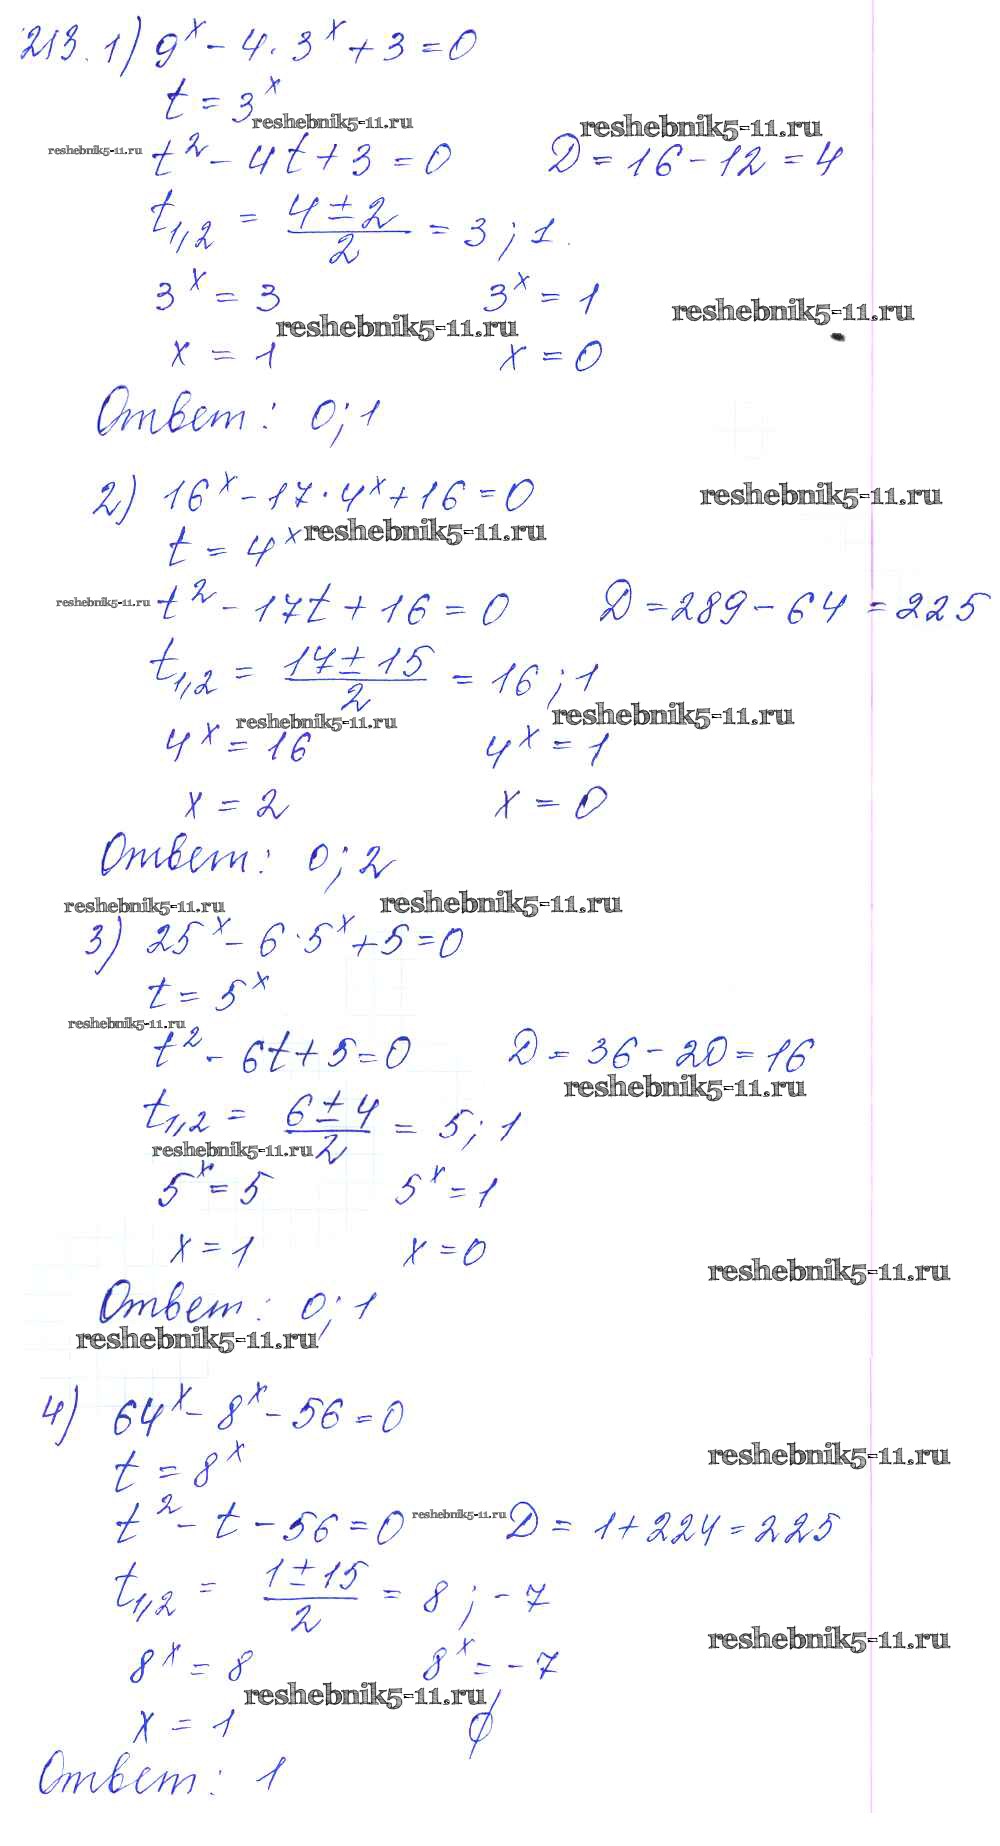 213. 1) 9^x - 4·3^x + 3 = 0
t = 3^x
reshebnik5-11.ru reshebnik5-11.ru
reshebnik5-11.ru t² - 4t + 3 = 0 D = 16 - 12 = 4
t₁,₂ = (4 ± 2)/2 = 3 ; 1.
3^x = 3 3^x = 1
reshebnik5-11.ru reshebnik5-11.ru
x = 1 x = 0
Ответ: 0; 1
2) 16^x - 17·4^x + 16 = 0 reshebnik5-11.ru
t = 4^x reshebnik5-11.ru
reshebnik5-11.ru t² - 17t + 16 = 0 D = 289 - 64 = 225
t₁,₂ = (17 ± 15)/2 = 16 ; 1
reshebnik5-11.ru reshebnik5-11.ru
4^x = 16 4^x = 1
x = 2 x = 0
Ответ: 0; 2
reshebnik5-11.ru reshebnik5-11.ru
3) 25^x - 6·5^x + 5 = 0
t = 5^x
reshebnik5-11.ru
t² - 6t + 5 = 0 D = 36 - 20 = 16
reshebnik5-11.ru
t₁,₂ = (6 ± 4)/2 = 5; 1
reshebnik5-11.ru
5^x = 5 5^x = 1
x = 1 x = 0
reshebnik5-11.ru
Ответ: 0; 1
reshebnik5-11.ru
4) 64^x - 8^x - 56 = 0
t = 8^x reshebnik5-11.ru
t² - t - 56 = 0 reshebnik5-11.ru D = 1 + 224 = 225
t₁,₂ = (1 ± 15)/2 = 8 ; -7
reshebnik5-11.ru
8^x = 8 8^x = -7
reshebnik5-11.ru
x = 1 ∅
Ответ: 1